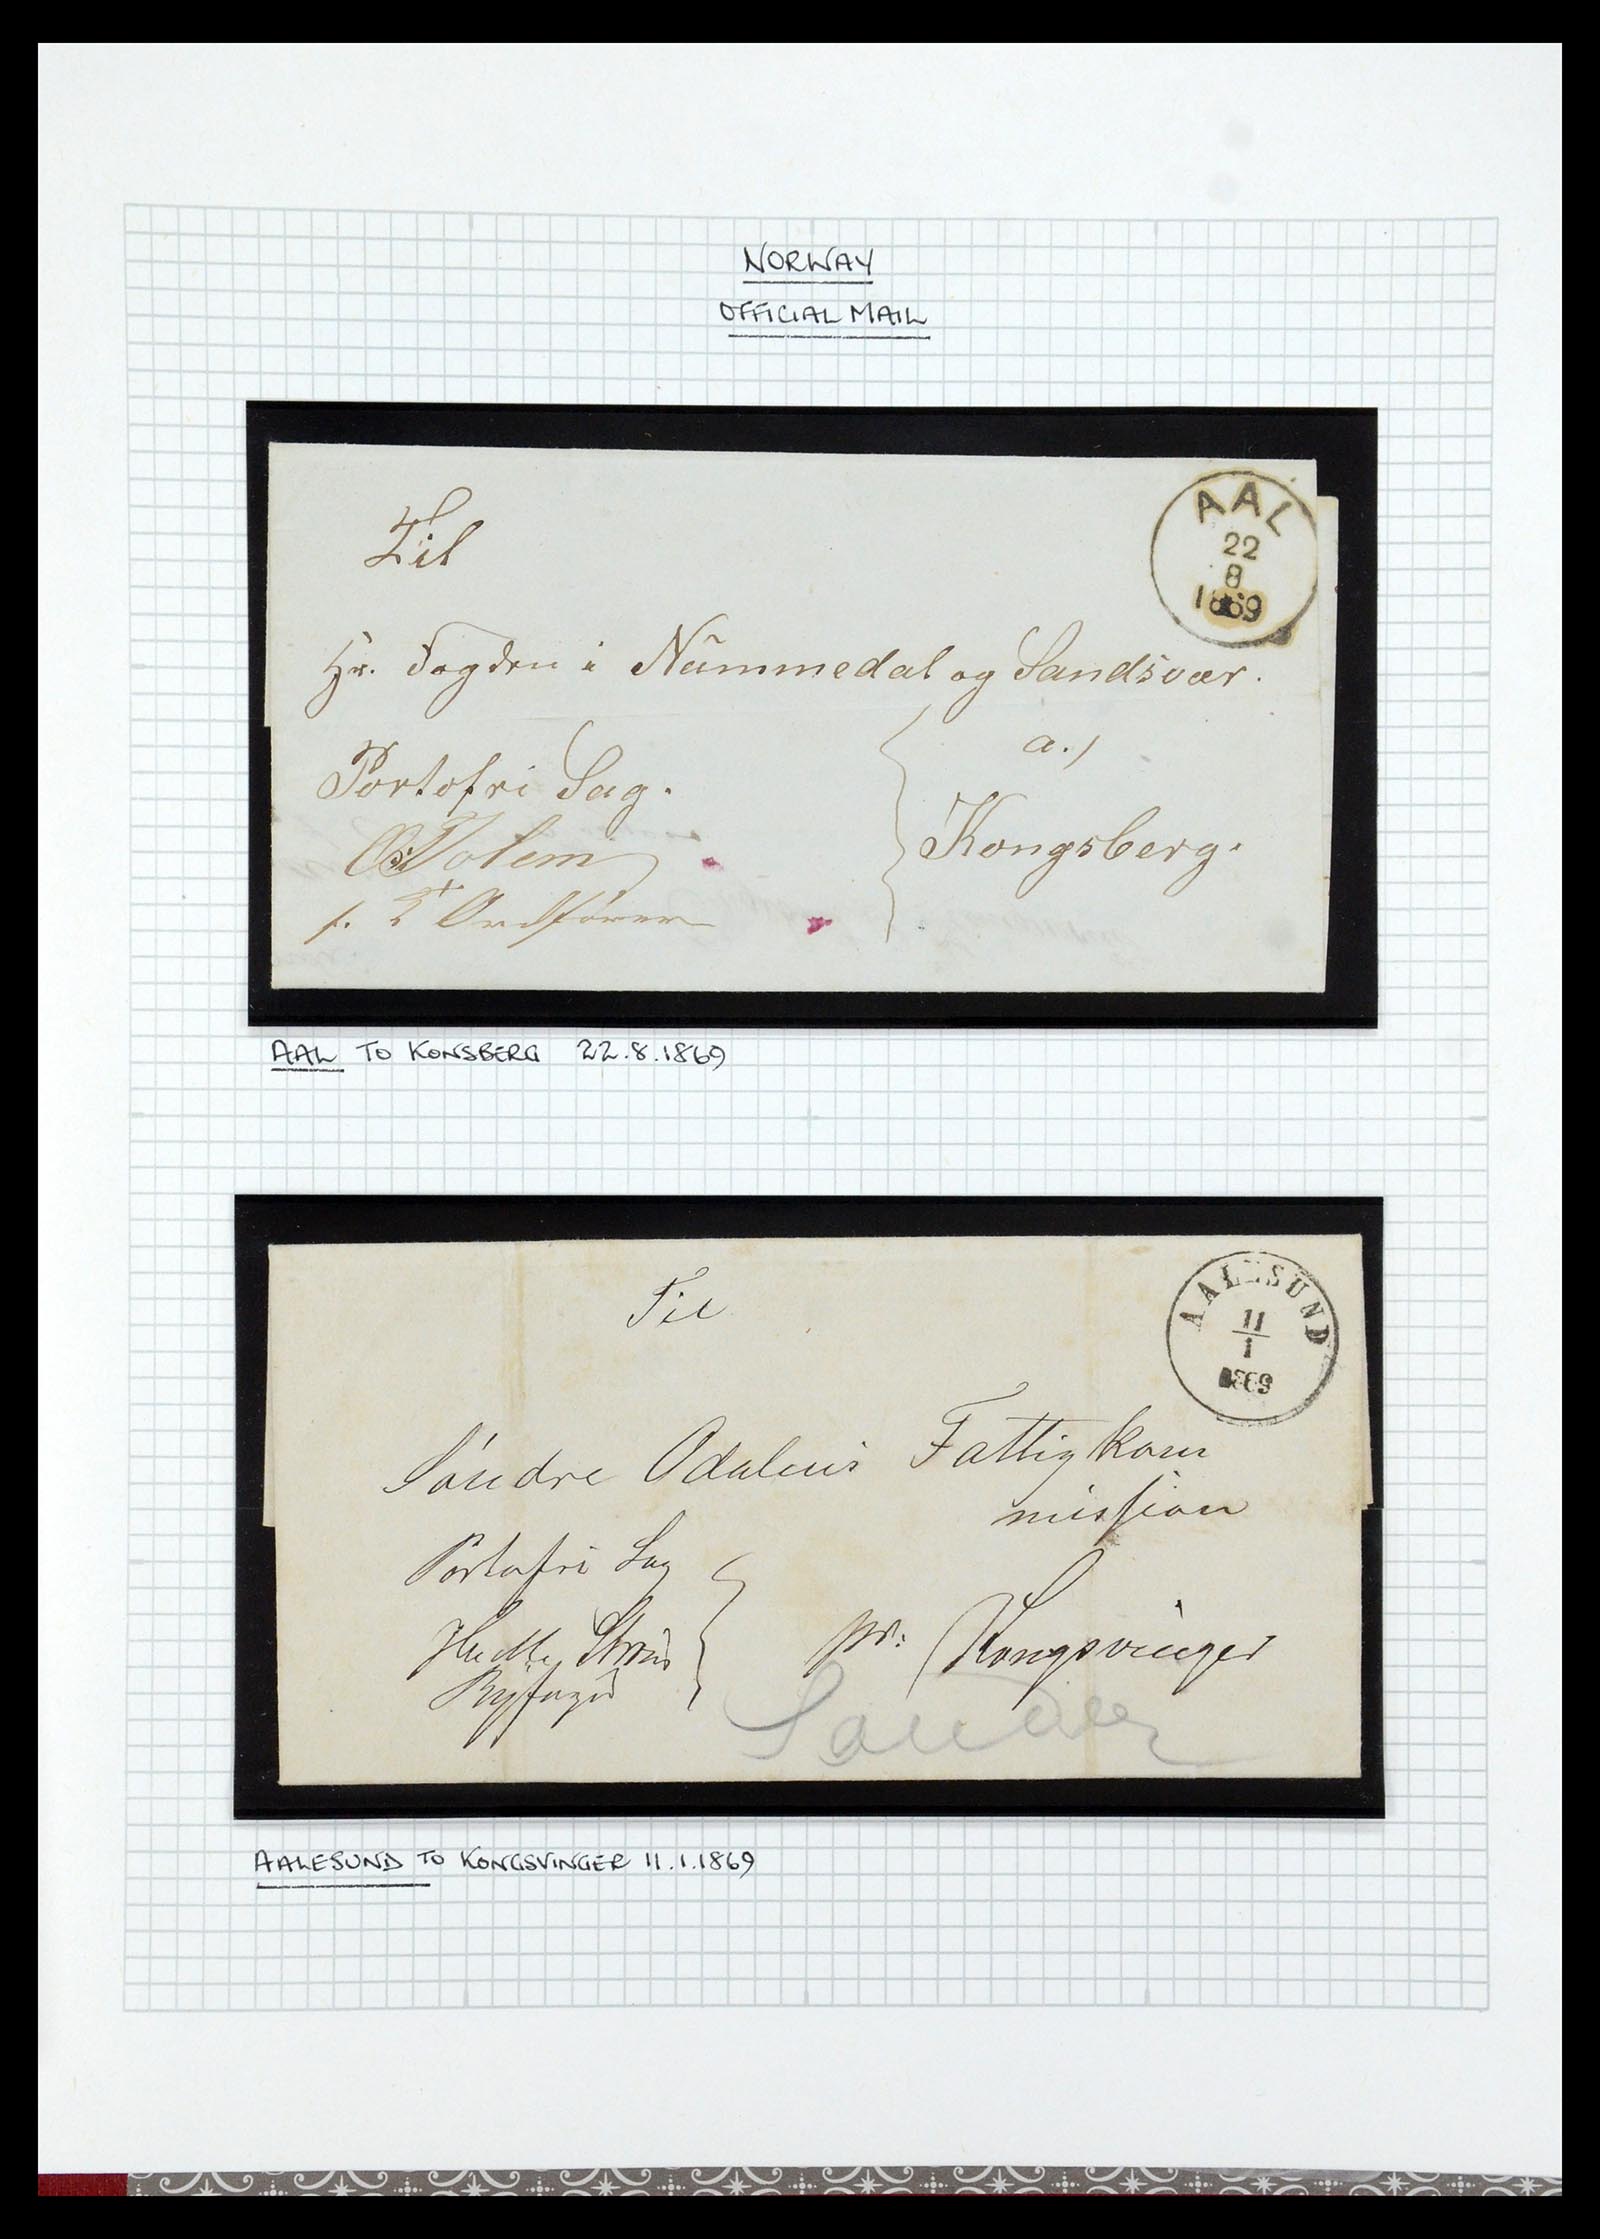 NORWAY
OFFICIAL MAIL
AAL
22
8
1869
Til
Hr. Fogden i Nummedal og Sandsvær.
a./
Portofri Sag.
Kongsberg.
f. T Ordfører
AAL TO KONSBERG 22.8.1869
AALESUND
11
1
1869
Til
Söndre Odalens Fattigkom
mission
Portofri Sag
pr: Kongsvinger
AALESUND TO KONGSVINGER 11.1.1869